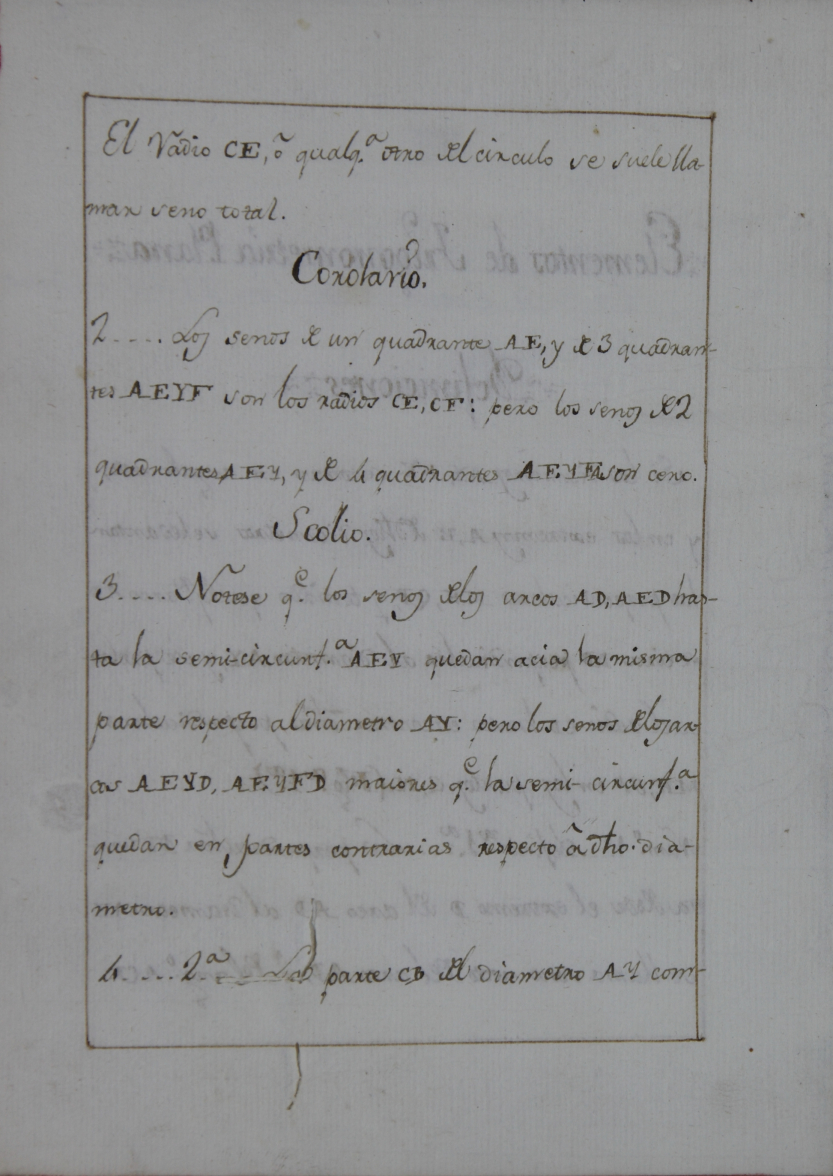 El Radio CE, ò qualq.ª otro del circulo se suele lla-
mar seno total.
Corolario.
2.... Los senos de un quadrante AE, y de 3 quadran-
tes AEYF son los radios CE, CF: pero los senos de 2
quadrantes AEY, y de 4 quadrantes AEYFA son cero.
Scolio.
3.... Nòtese q.e los senos de los arcos AD, AED has-
ta la semi-circunf.ª AEY quedan acia la misma
parte respecto al diametro AY: pero los senos de los ar-
cos AEYD, AEYFD maiores q.e la semi-circunf.ª
quedan en partes contrarias respecto à dho. dia-
metro.
4.... 2.ª .... La parte CB del diametro AY com-